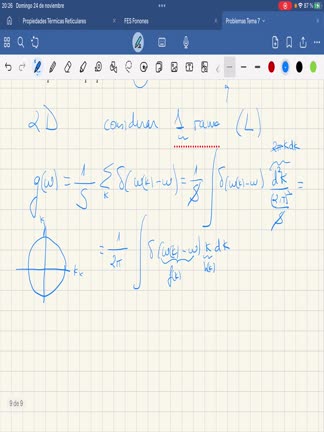 20:26 Domingo 24 de noviembre
67 %
Propiedades Térmicas Reticulares
FES Fonones
Problemas Tema 7
2D considerar 1 rama (L)
2πkdk
g(ω) = 1/S ∑_k δ(ω(k) − ω) = 1/S ∫ δ(ω(k) − ω) d²k / ((2π)²/S) =
= 1/2π ∫ δ(ω(k) − ω) k dk
f(k) h(k)
k_x
9 de 9